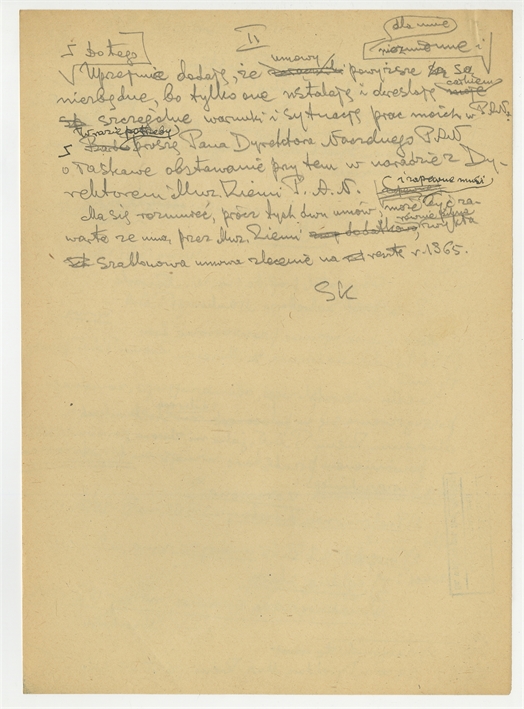 II
dla mnie
5 Do tego niezmienne i
Uprzejmie dodaję, że umowy powyższe są
niezbędne, bo tylko one ustalają i określają całkiem
szczególne warunki i sytuację prac moich w P.A.N.
W razie potrzeby
5 proszę Pana Dyrektora Naczelnego P.A.N
o łaskawe obstawanie przy tem w naradzie z Dy-
rektorem Muz. Ziemi P. A. N.
(i zapewne musi
Ma się rozumieć, prócz tych dwu umów, może być za-
warta ze mną, przez Muz. Ziemi zwykła
szablonowa umowa zlecenie na resztę r. 1965.
SK